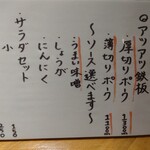 ◎アツアツ鉄板
・厚切りポーク
・薄切りポーク
〜ソース選べます〜
・うまい味噌
・しょうが
・にんにく
・サラダセット
小